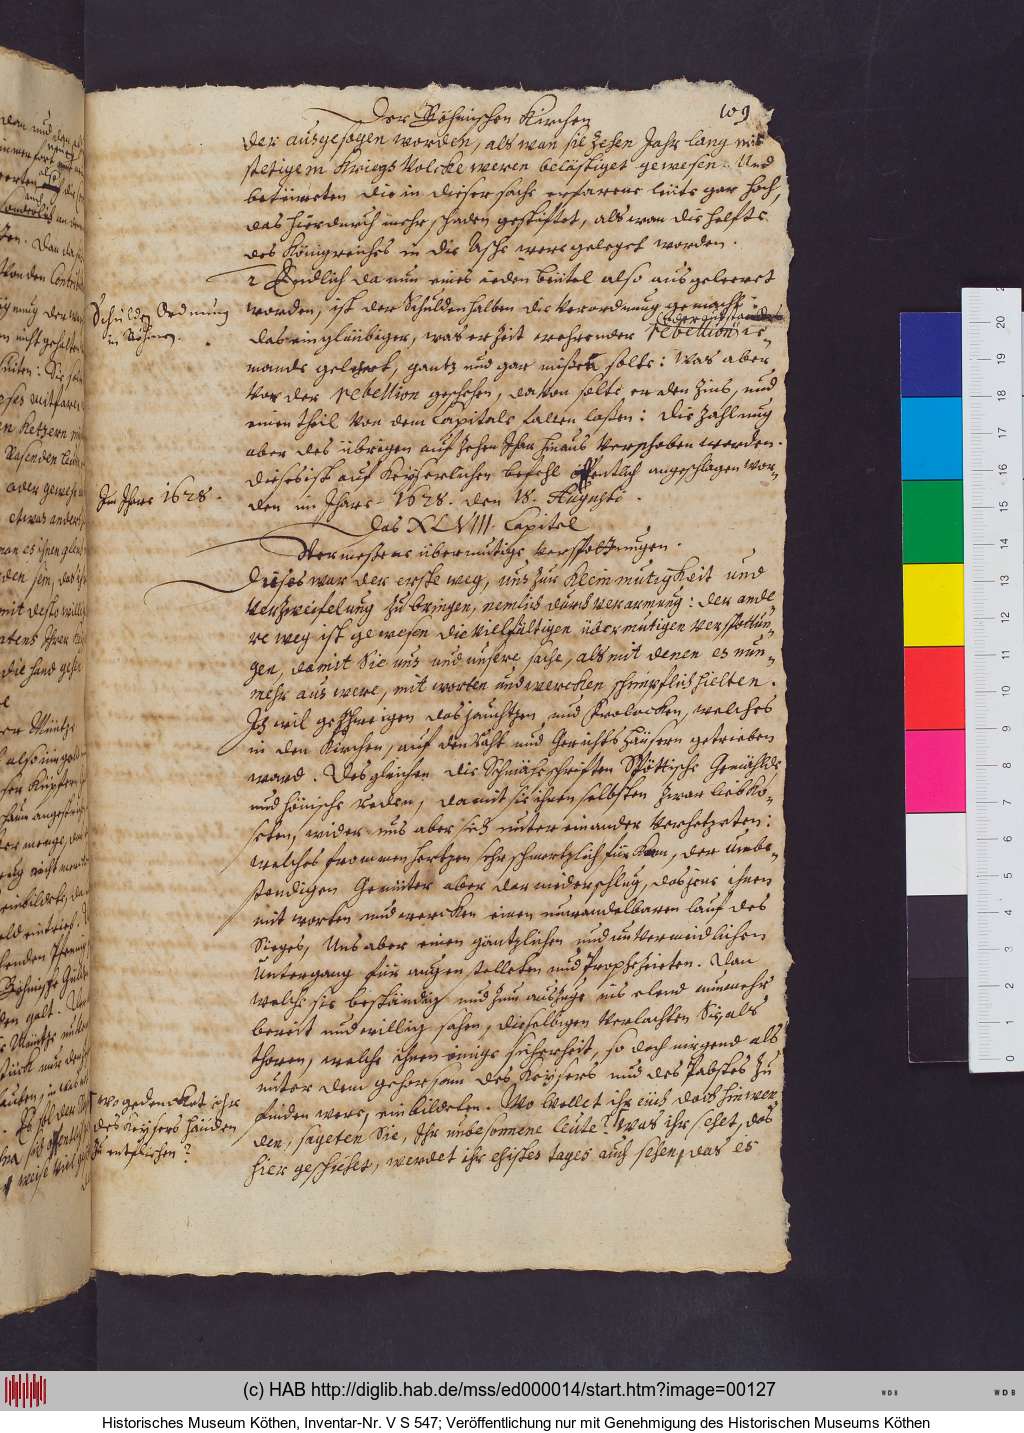 Der Böhmischen Kirchen
109
der ausgesogen worden, als wan sie zehen Jahr lang mit
stetigem Kriegs Volcke weren belästiget gewesen. Und
beteureten die in dieser sache erfarene leute gar hoch,
das hierdurch mehr schaden gestifftet, als wan die helffte
des Königreichs in die Asche were geleget worden.
2 Endlich da nun eines ieden beutel also ausgeleeret
Schulden Ordnung
in Böhmen.
worden, ist der Schulden halten die Verordnung gemacht:
das ein gläubiger, was er Zeit wehrender rebellion ie-
mands gelehnet, gantz und gar missen solte: Was aber
vor der rebellion geschehen, davon solte er den Zins, und
einen theil von dem Capitale fallen lassen: Die Zahlung
aber des übrigen auf zehen Jhar hinaus verschoben werden.
Dieses ist auf Keyserlichen befehl öffentlich angeschlagen wor-
Im Jhare 1628.
den im Jhare 1628. den 18. Augusti.
Das XLVIII. Capitel
Der übermütige verspottungen.
Dieses war der erste weg, uns zur kleinmutigkeit und
Verzweifelung zu bringen, nemlich durch verarmung: der ande-
re weg ist gewesen die vielfältigen übermutigen verspottun-
gen, damit Sie uns und unsere sache, als mit denen es nun-
mehr aus were, mit worten und wercken schimpflich hielten.
Ich wil geschweigen das jauchtzen und frolocken, welches
in den Kirchen, auf den Raht und Gerichts häusern getrieben
ward. Desgleichen die Schmähschriften Spöttische Gemählde
und hönische reden, damit sie ihnen selbsten zwar liebko-
seten, wider uns aber sich unter einander verhetzeten:
welches frommen hertzen sehr schmertzlich fürkam, der unbe-
stendigen Gemüter aber der niederschlug, das jene ihnen
mit worten und wercken einen unwandelbaren lauf des
Sieges, Uns aber einen gäntzlichen und unvermeidlichen
Untergang für augen stelleten und Propheheieten. Dan
welche sie beständig und zum auszuge ins elend nunmehr
bereit und willig sahen, dieselbigen verlachten Sie, als
thoren, welche ihnen einige sicherheit, so doch nirgend als
unter dem gehorsam des Keysers und des Pabstes zu
finden were, einbildeten. Wo wollet ihr euch doch hinwen-
wo gedencket ihr
des Keysers händen
zu entfliehen?
den, sageten Sie, Ihr unbesonnene leute? Was ihr sehet, das
hier geschiehet, werdet ihr ehistes tages auch sehen, das es
(c) HAB http://diglib.hab.de/mss/ed000014/start.htm?image=00127
Historisches Museum Köthen, Inventar-Nr. V S 547; Veröffentlichung nur mit Genehmigung des Historischen Museums Köthen